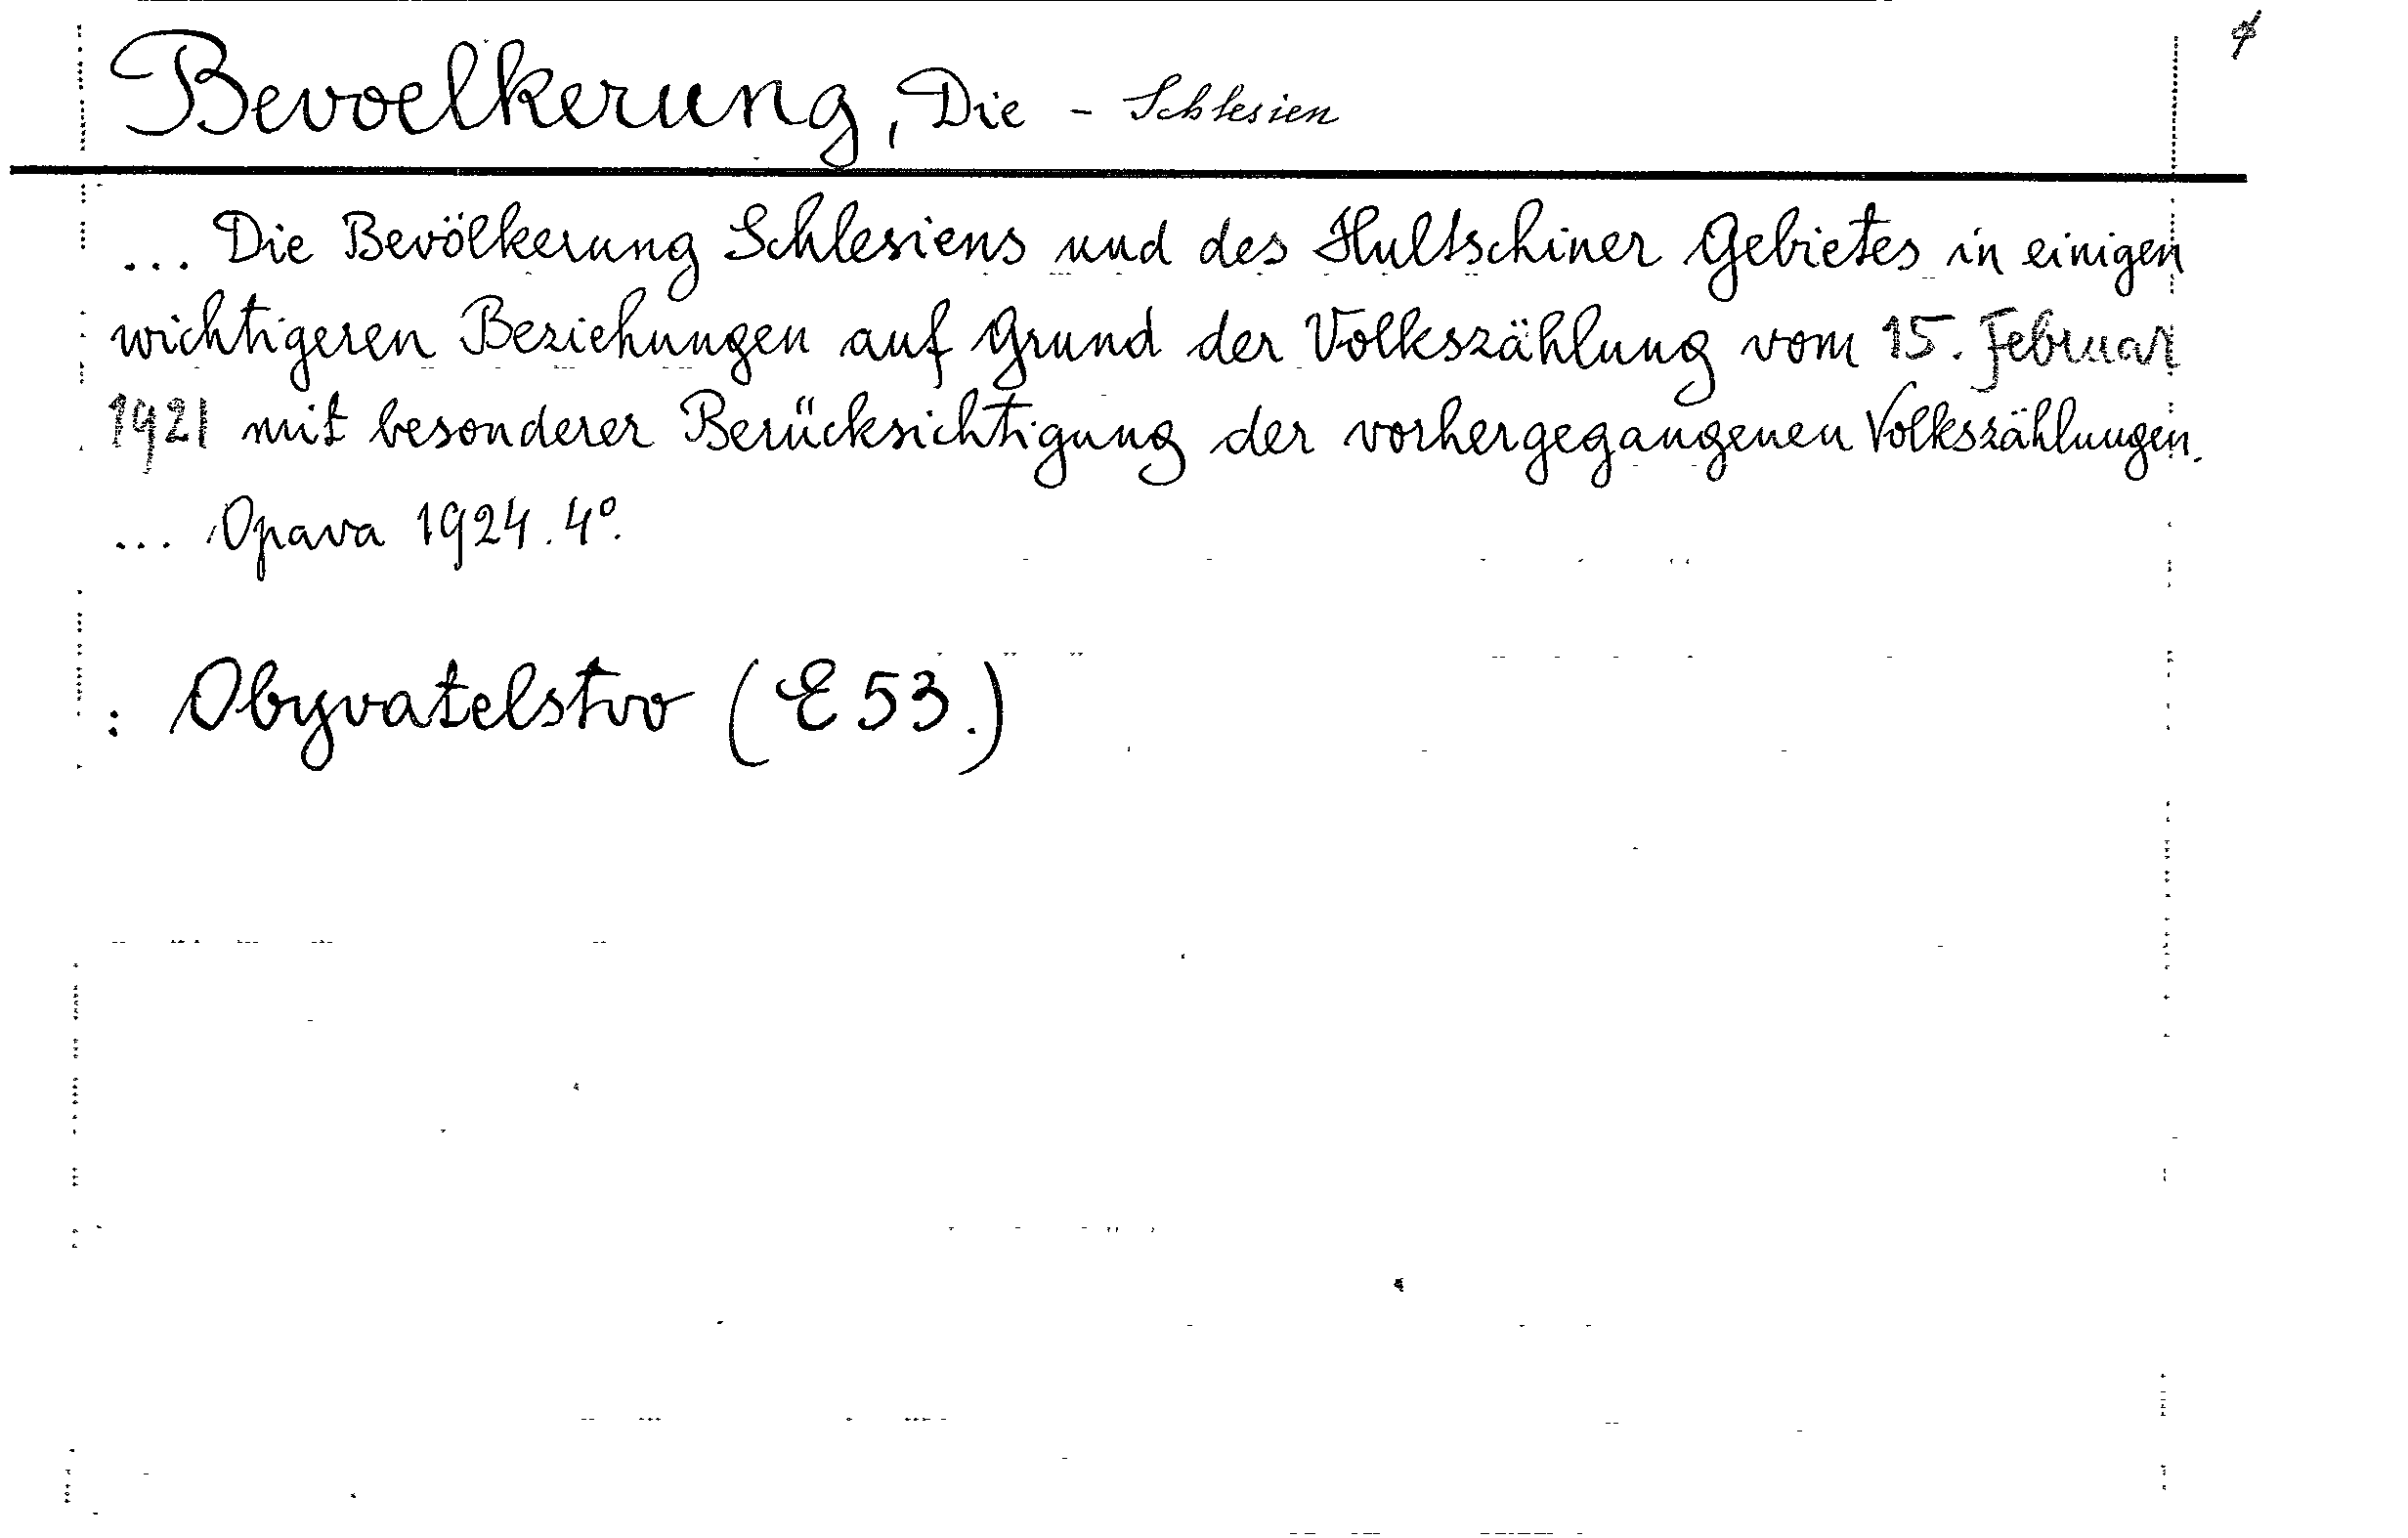 Bevoelkerung, Die - Schlesien
... Die Bevölkerung Schlesiens und des Hultschiner Gebietes in einigen
wichtigeren Beziehungen auf Grund der Volkszählung vom 15. Februar
1921 mit besonderer Berücksichtigung der vorhergegangenen Volkszählungen.
... Opava 1924. 4°.
: Obyvatelstvo (E 53.)